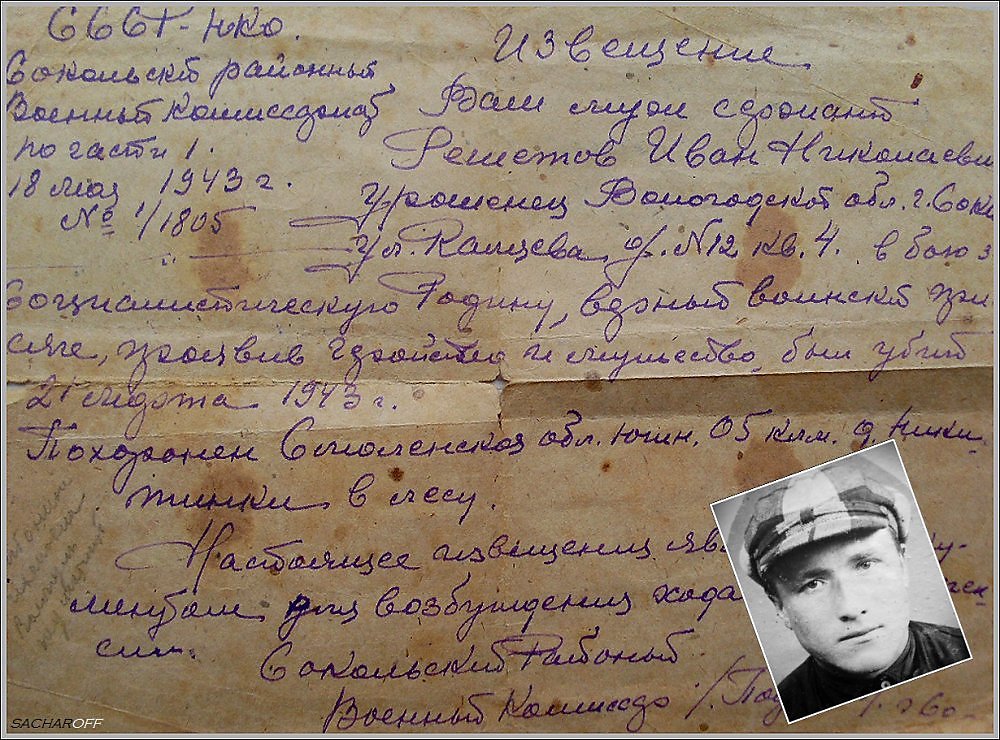 СССР-НКО.
Сокольский районный
Военный Комиссариат
по части 1.
18 мая 1943 г.
№ 1/1805
Извещение
Ваш муж сержант
Решетов Иван Николаеви
Уроженец Вологодской обл. г. Соки
Ул. Каляева д. N12 кв. 4. в бою з
Социалистическую Родину, верный воинской при
сяге, проявив геройство и мужество, был убит
21 марта 1943 г.
Похоронен Смоленская обл. южн. 05 клм. д. Ники
тинки в лесу.
Настоящее извещения яв у-
ментом для возбуждения хода пен
сии.
Сокольский Районый
Военный Комиссар /. Под
SACHAROFF